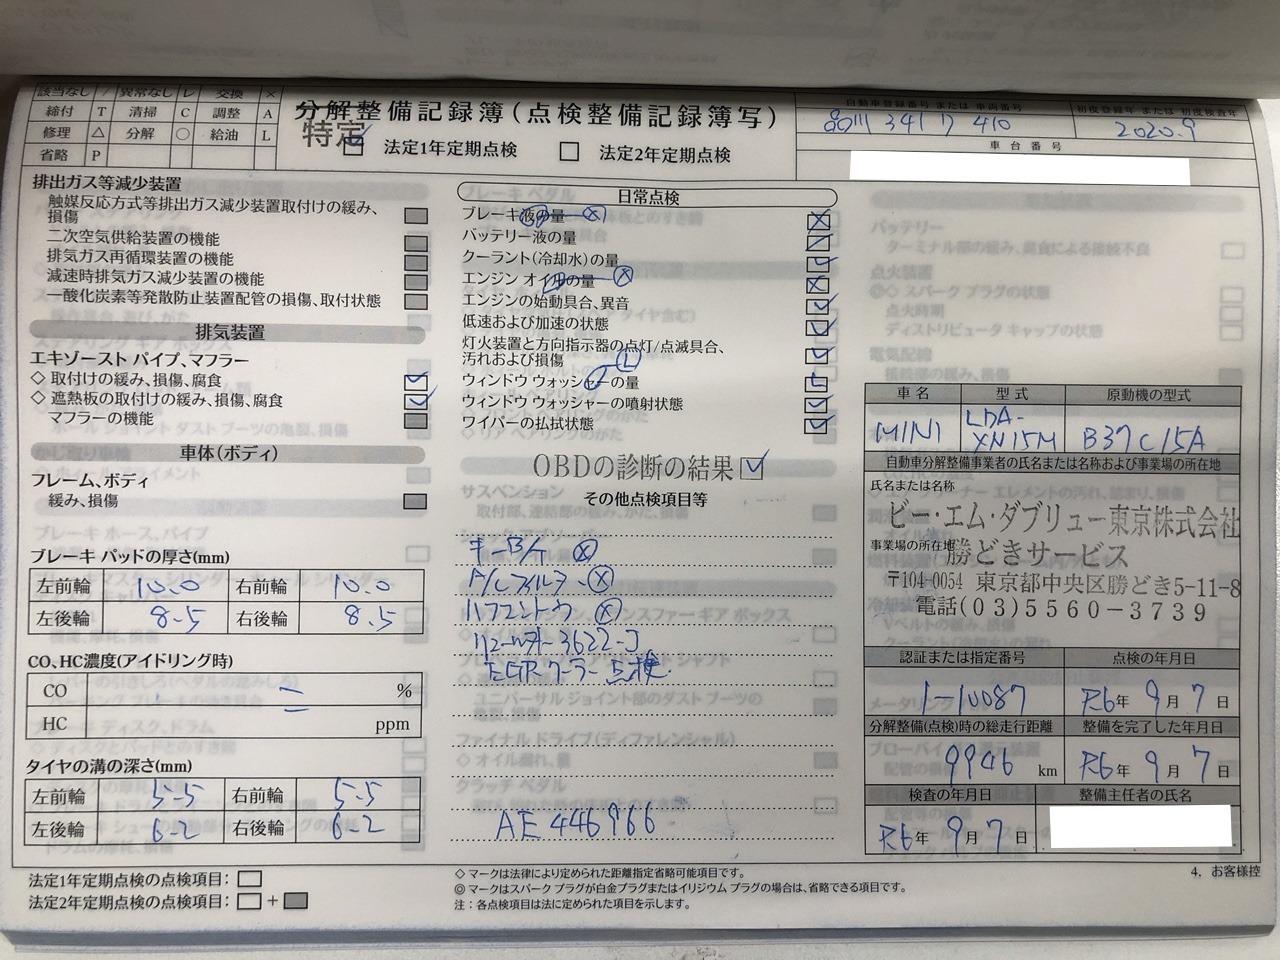 該当なし / 異常なし レ 交換 ×
締付 T 清掃 C 調整 A
修理 △ 分解 ○ 給油 L
省略 P
分解整備記録簿(点検整備記録簿写)
特定
法定1年定期点検 法定2年定期点検
自動車登録番号 または 車両番号
品川 341
初度登録年 または 初度検査年
2020.9
車台番号
排出ガス等減少装置
触媒反応方式等排出ガス減少装置取付けの緩み、
損傷
二次空気供給装置の機能
排気ガス再循環装置の機能
減速時排気ガス減少装置の機能
一酸化炭素等発散防止装置配管の損傷、取付状態
排気装置
エキゾースト パイプ、マフラー
◇ 取付けの緩み、損傷、腐食
◇ 遮熱板の取付けの緩み、損傷、腐食
マフラーの機能
車体(ボディ)
フレーム、ボディ
緩み、損傷
ブレーキ パッドの厚さ(mm)
左前輪 10.0 右前輪 10.0
左後輪 8.5 右後輪 8.5
CO、HC濃度(アイドリング時)
CO %
HC ppm
タイヤの溝の深さ(mm)
左前輪 5.5 右前輪 5.5
左後輪 6.2 右後輪 6.2
日常点検
ブレーキ液の量 ×
バッテリー液の量
クーラント(冷却水)の量
エンジン オイルの量 ×
エンジンの始動具合、異音
低速および加速の状態
灯火装置と方向指示器の点灯/点滅具合、
汚れおよび損傷
ウィンドウ ウォッシャーの量 L
ウィンドウ ウォッシャーの噴射状態
ワイパーの払拭状態
OBDの診断の結果
その他点検項目等
キーBATT ×
A/Cフィルター ×
×
リコール 3622-J
EGRクーラー点検
AE 446966
車名 型式 原動機の型式
MINI LDA-XN15M B37C15A
自動車分解整備事業者の氏名または名称および事業場の所在地
氏名または名称
ビー・エム・ダブリュー東京株式会社
事業場の所在地
勝どきサービス
〒104-0054 東京都中央区勝どき5-11-8
電話(03)5560-3739
認証または指定番号 点検の年月日
1-10087 R6年 9月 7日
分解整備(点検)時の総走行距離 整備を完了した年月日
9946 km R6年 9月 7日
検査の年月日 整備主任者の氏名
R6年 9月 7日
法定1年定期点検の点検項目:
法定2年定期点検の点検項目: +
◇ マークは法律により定められた距離指定省略可能項目です。
◎ マークはスパーク プラグが白金プラグまたはイリジウム プラグの場合は、省略できる項目です。
注:各点検項目は法に定められた項目を示します。
4. お客様控